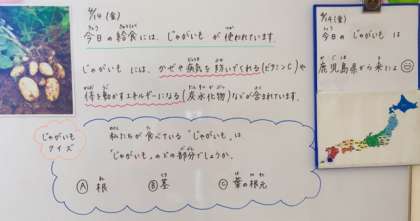 6/14(金)
今日の給食には、じゃがいもが使われています。
じゃがいもには、かぜや病気を防いでくれる(ビタミンC)や
体を動かすエネルギーになる(炭水化物)などが含まれています。
じゃがいも
クイズ
私たちが食べている"じゃがいも"は
"じゃがいも"のどの部分でしょうか。
Ⓐ 根 Ⓑ 茎 Ⓒ 葉の根元
6/14(金)
今日のじゃがいもは
鹿児島県から来たよ